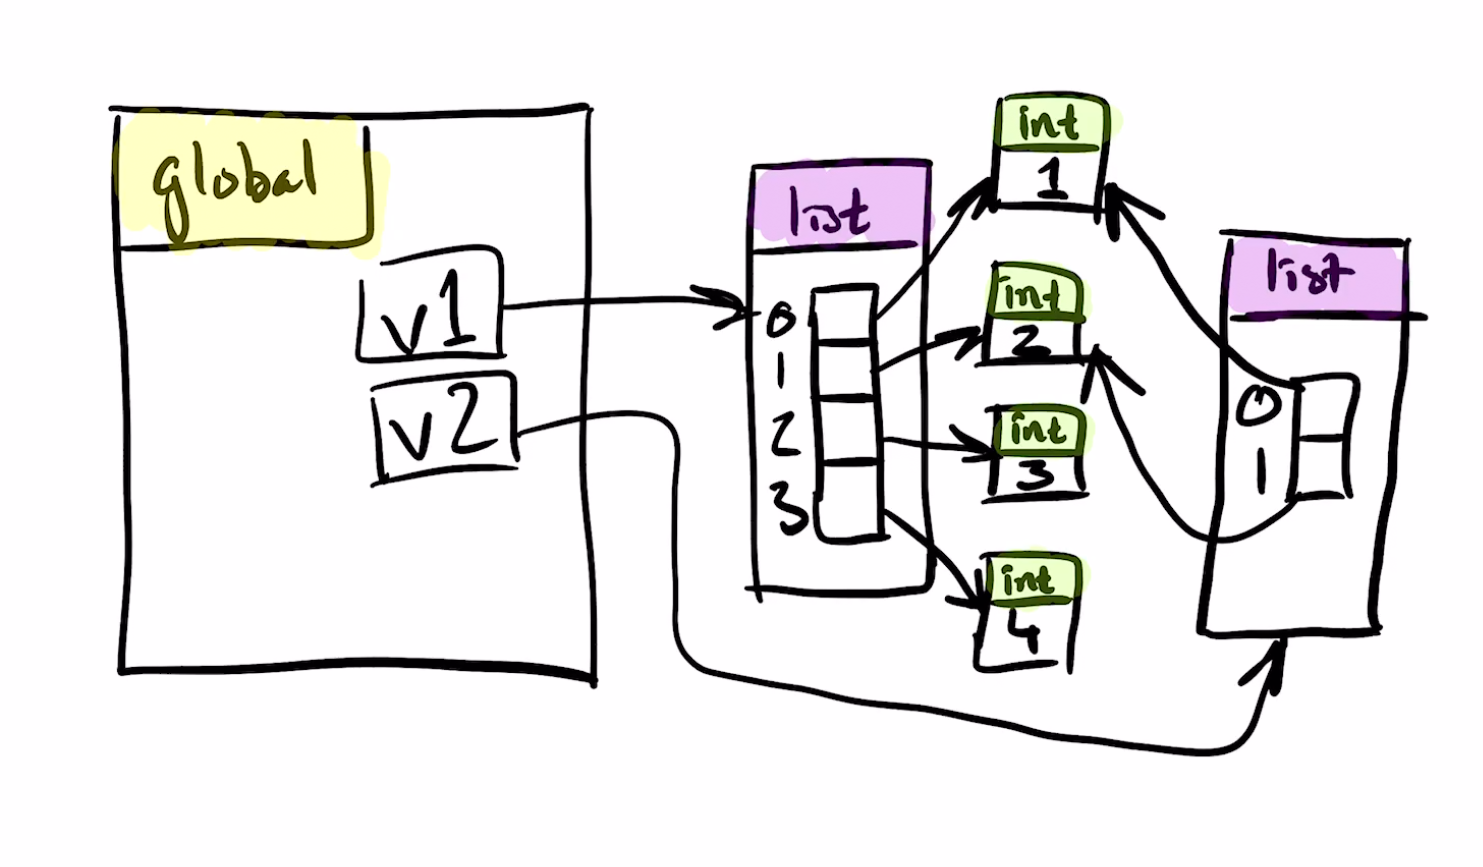 global
v1
v2
list
0
1
2
3
int
1
int
2
int
3
int
4
list
0
1